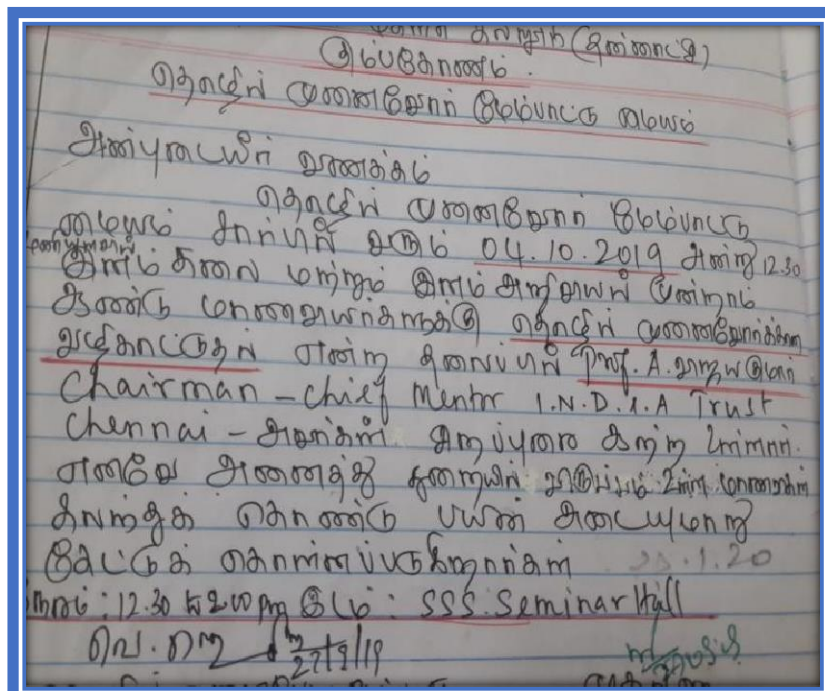 கல்லூரி (தன்னாட்சி)
கும்பகோணம்.
தொழில் முனைவோர் மேம்பாட்டு மையம்
அன்புடையீர் வணக்கம்
தொழில் முனைவோர் மேம்பாட்டு
மையம் சார்பில் வரும் 04.10.2019 அன்று 12.30
இளம் கலை மற்றும் இளம் அறிவியல் மூன்றாம்
ஆண்டு மாணவியர்களுக்கு தொழில் முனைவோர்க்கான
வழிகாட்டுதல் என்ற தலைப்பில் Prof. A.
Chairman - Chief Mentor I.N.D.I.A Trust
Chennai - அவர்கள் சிறப்புரை
எனவே அனைத்து துறையில் விருப்பம் உள்ள மாணவிகள்
கலந்துக் கொண்டு பயன் அடையுமாறு
கேட்டுக் கொள்ளப்படுகிறார்கள்
நேரம் : 12.30 to 2.00 pm இடம் : SSS Seminar Hall
27/9/19